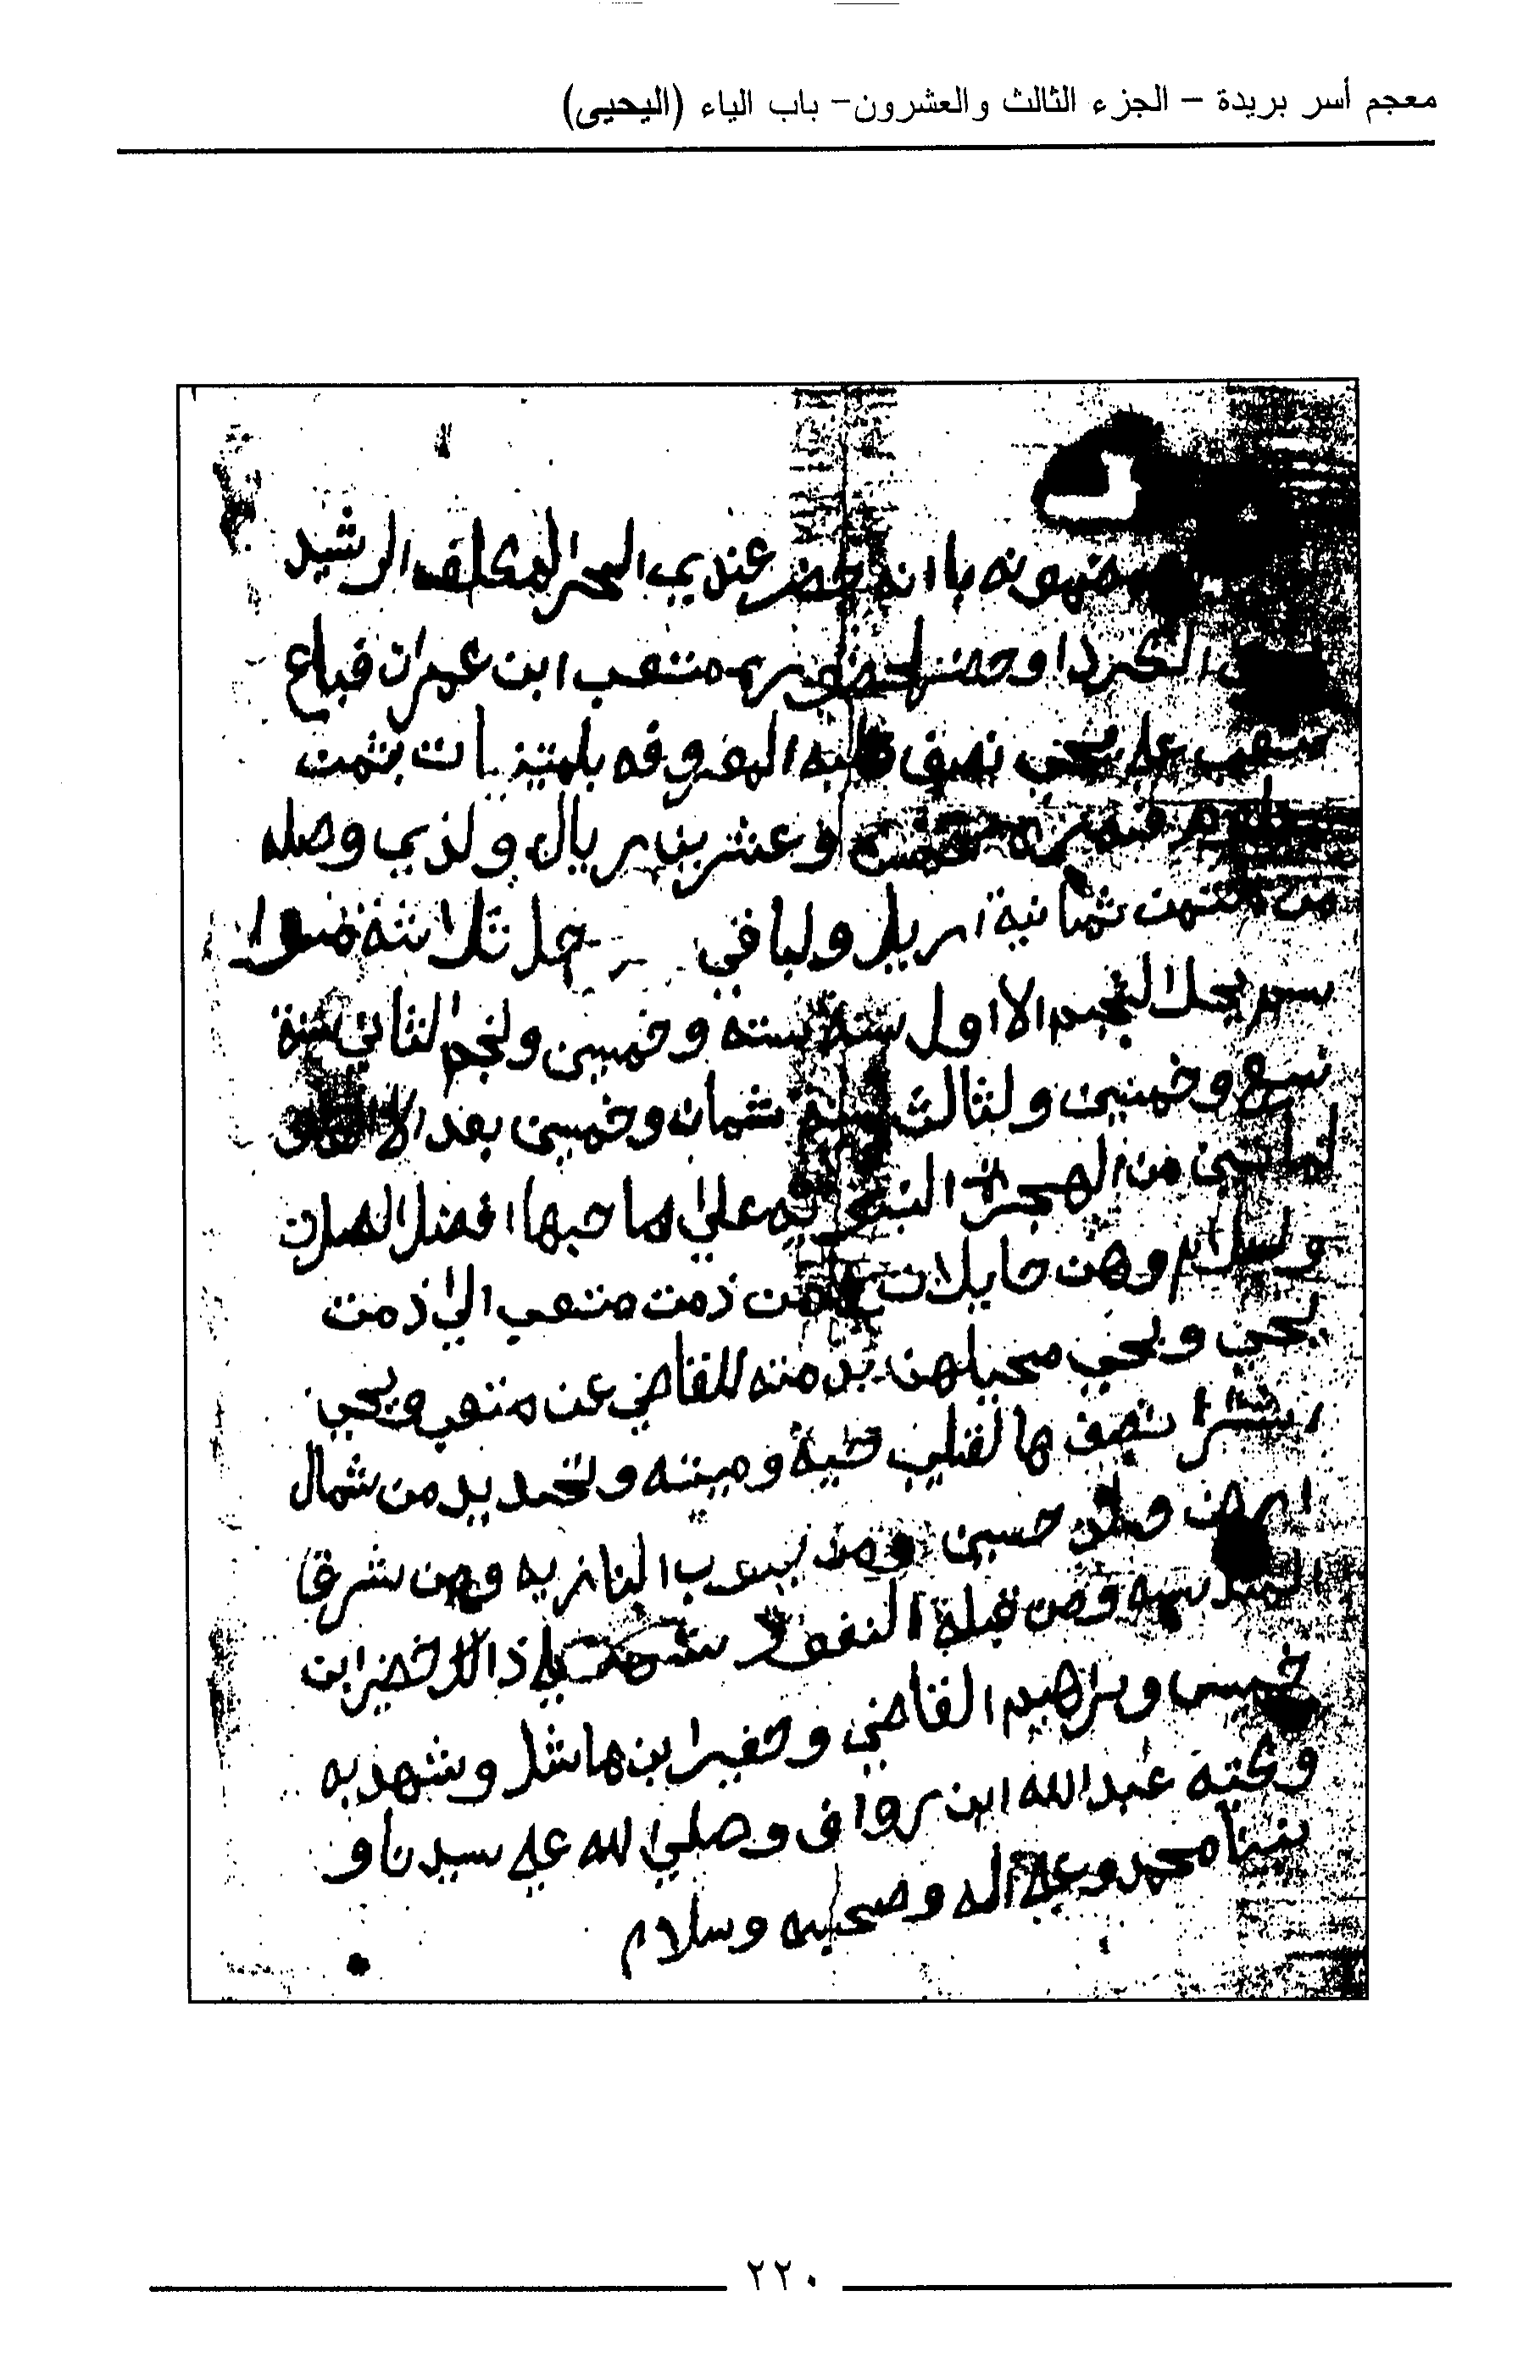 معجم أسر بريدة – الجزء الثالث والعشرون– باب الياء (اليحيى)
مضمونه باانه حضر عندي الحر المكلف الرشيد
الكردا وحضر لحضوره متعب ابن عمران فباع
متعب علي يحي نصيف قليبه المعروفه بلمتينيات بثمن
معلوم قدره خمس وعشرين ريال ولذي وصله
من الثمن ثمانية اريل ولباقي حل ثلاثة
يحل النجم الااول سنة سته وخمسين ولنجم الثاني سنة
سبع وخمسين ولثالث سنة ثمان وخمسين بعد الالف و
لمائتين من الهجرة النبويه علي صاحبها افضل الصلات
ولسلام وهن حايلات من ذمت متعب الي ذمت
يحي ويحي محيلهن بذمته للقاضي عن متعب ويحي
اشترا نصف هالقليب حيه وميته ولتحديد من شمال
حسين ومن جنوب البنازيه ومن شرق
ومن قبلة النفود شهد علي ذالك خضير ابن
خميس وبراهيم القاضي وخفير ابن هاشل وشهد به
وكتبه عبدالله ابن رواف وصلي لله علي سيدنا و
نبينا محمد وعلي آله وصحبه وسلام
٢٢٠